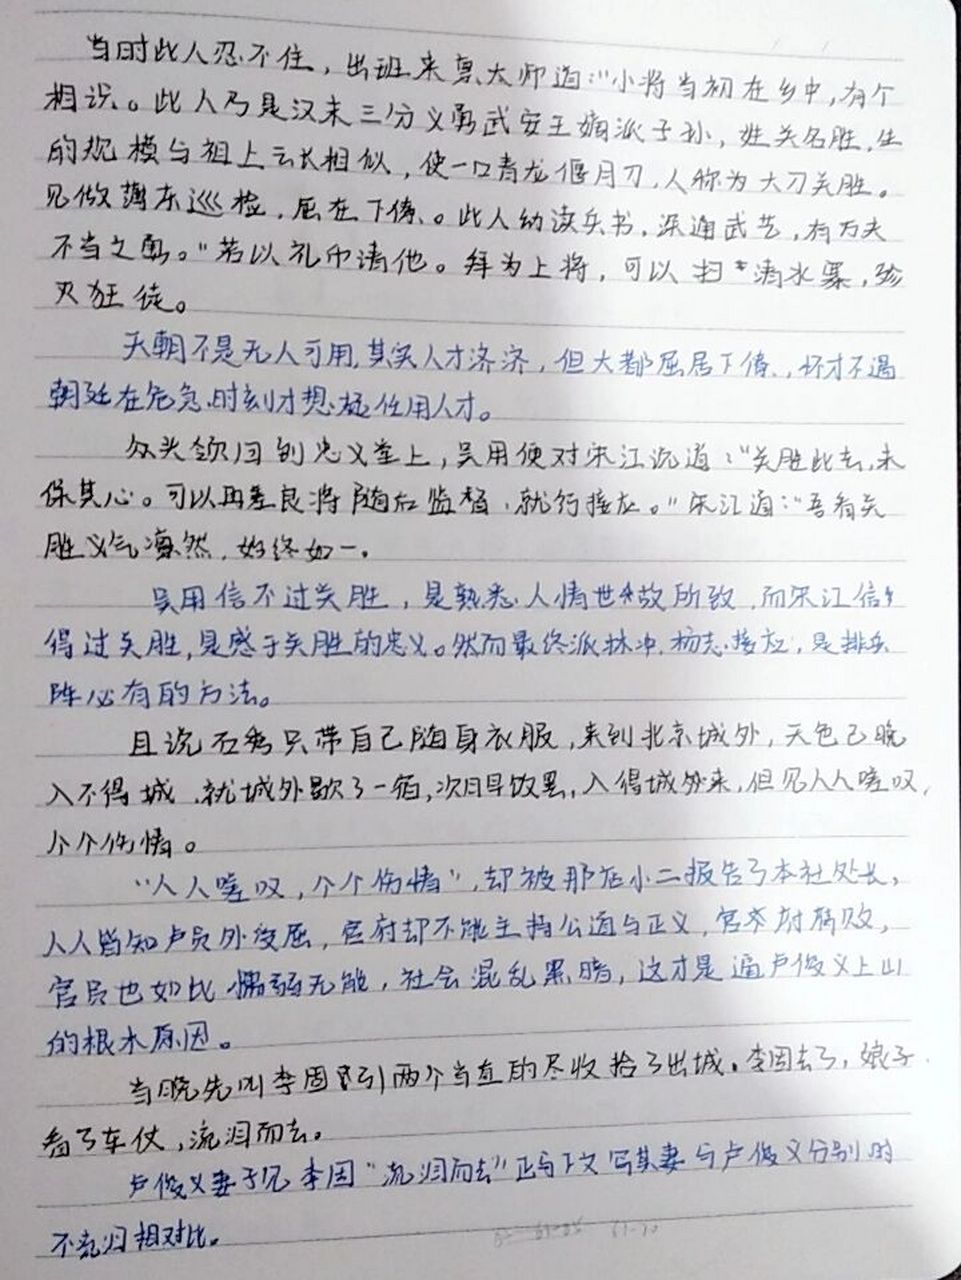 当时此人忍不住，出班来禀太师道：“小将当初在乡中，有个
相识。此人乃是汉末三分义勇武安王嫡派子孙，姓关名胜，生
的规模与祖上云长相似，使一口青龙偃月刀，人称为大刀关胜。
见做蒲东巡检，屈在下僚。此人幼读兵书，深通武艺，有万夫
不当之勇。”若以礼币请他。拜为上将，可以扫清水寨，殄
灭狂徒。
天朝不是无人可用，其实人才济济，但大都屈居下僚，怀才不遇
朝廷在危急时刻才想起任用人才。
众头领回到忠义堂上，吴用便对宋江说道：“关胜此去，未
保其心。可以再差良将随后监督，就行接应。”宋江道：“吾看关
胜义气凛然，始终如一。
吴用信不过关胜，是熟悉人情世故所致，而宋江信
得过关胜，是感于关胜的忠义。然而最终派林冲，杨志接应，是排兵
阵必有的方法。
且说石秀只带自己随身衣服，来到北京城外，天色已晚
入不得城，就城外歇了一宿，次日早饭罢，入得城外来，但见人人嗟叹，
个个伤情。
“人人嗟叹，个个伤情”，却被那店小二报告了本社处长，
人人皆知卢员外受屈，官府却不能主持公道与正义，官府腐败，
官员也如此懦弱无能，社会混乱黑暗，这才是逼卢俊义上山
的根本原因。
当晚先叫李固引两个当直的尽收拾了出城。李固去了，娘子
看了车仗，流泪而去。
卢俊义妻子见李固“流泪而去”正与下文写其妻与卢俊义分别时
不流泪相对比。